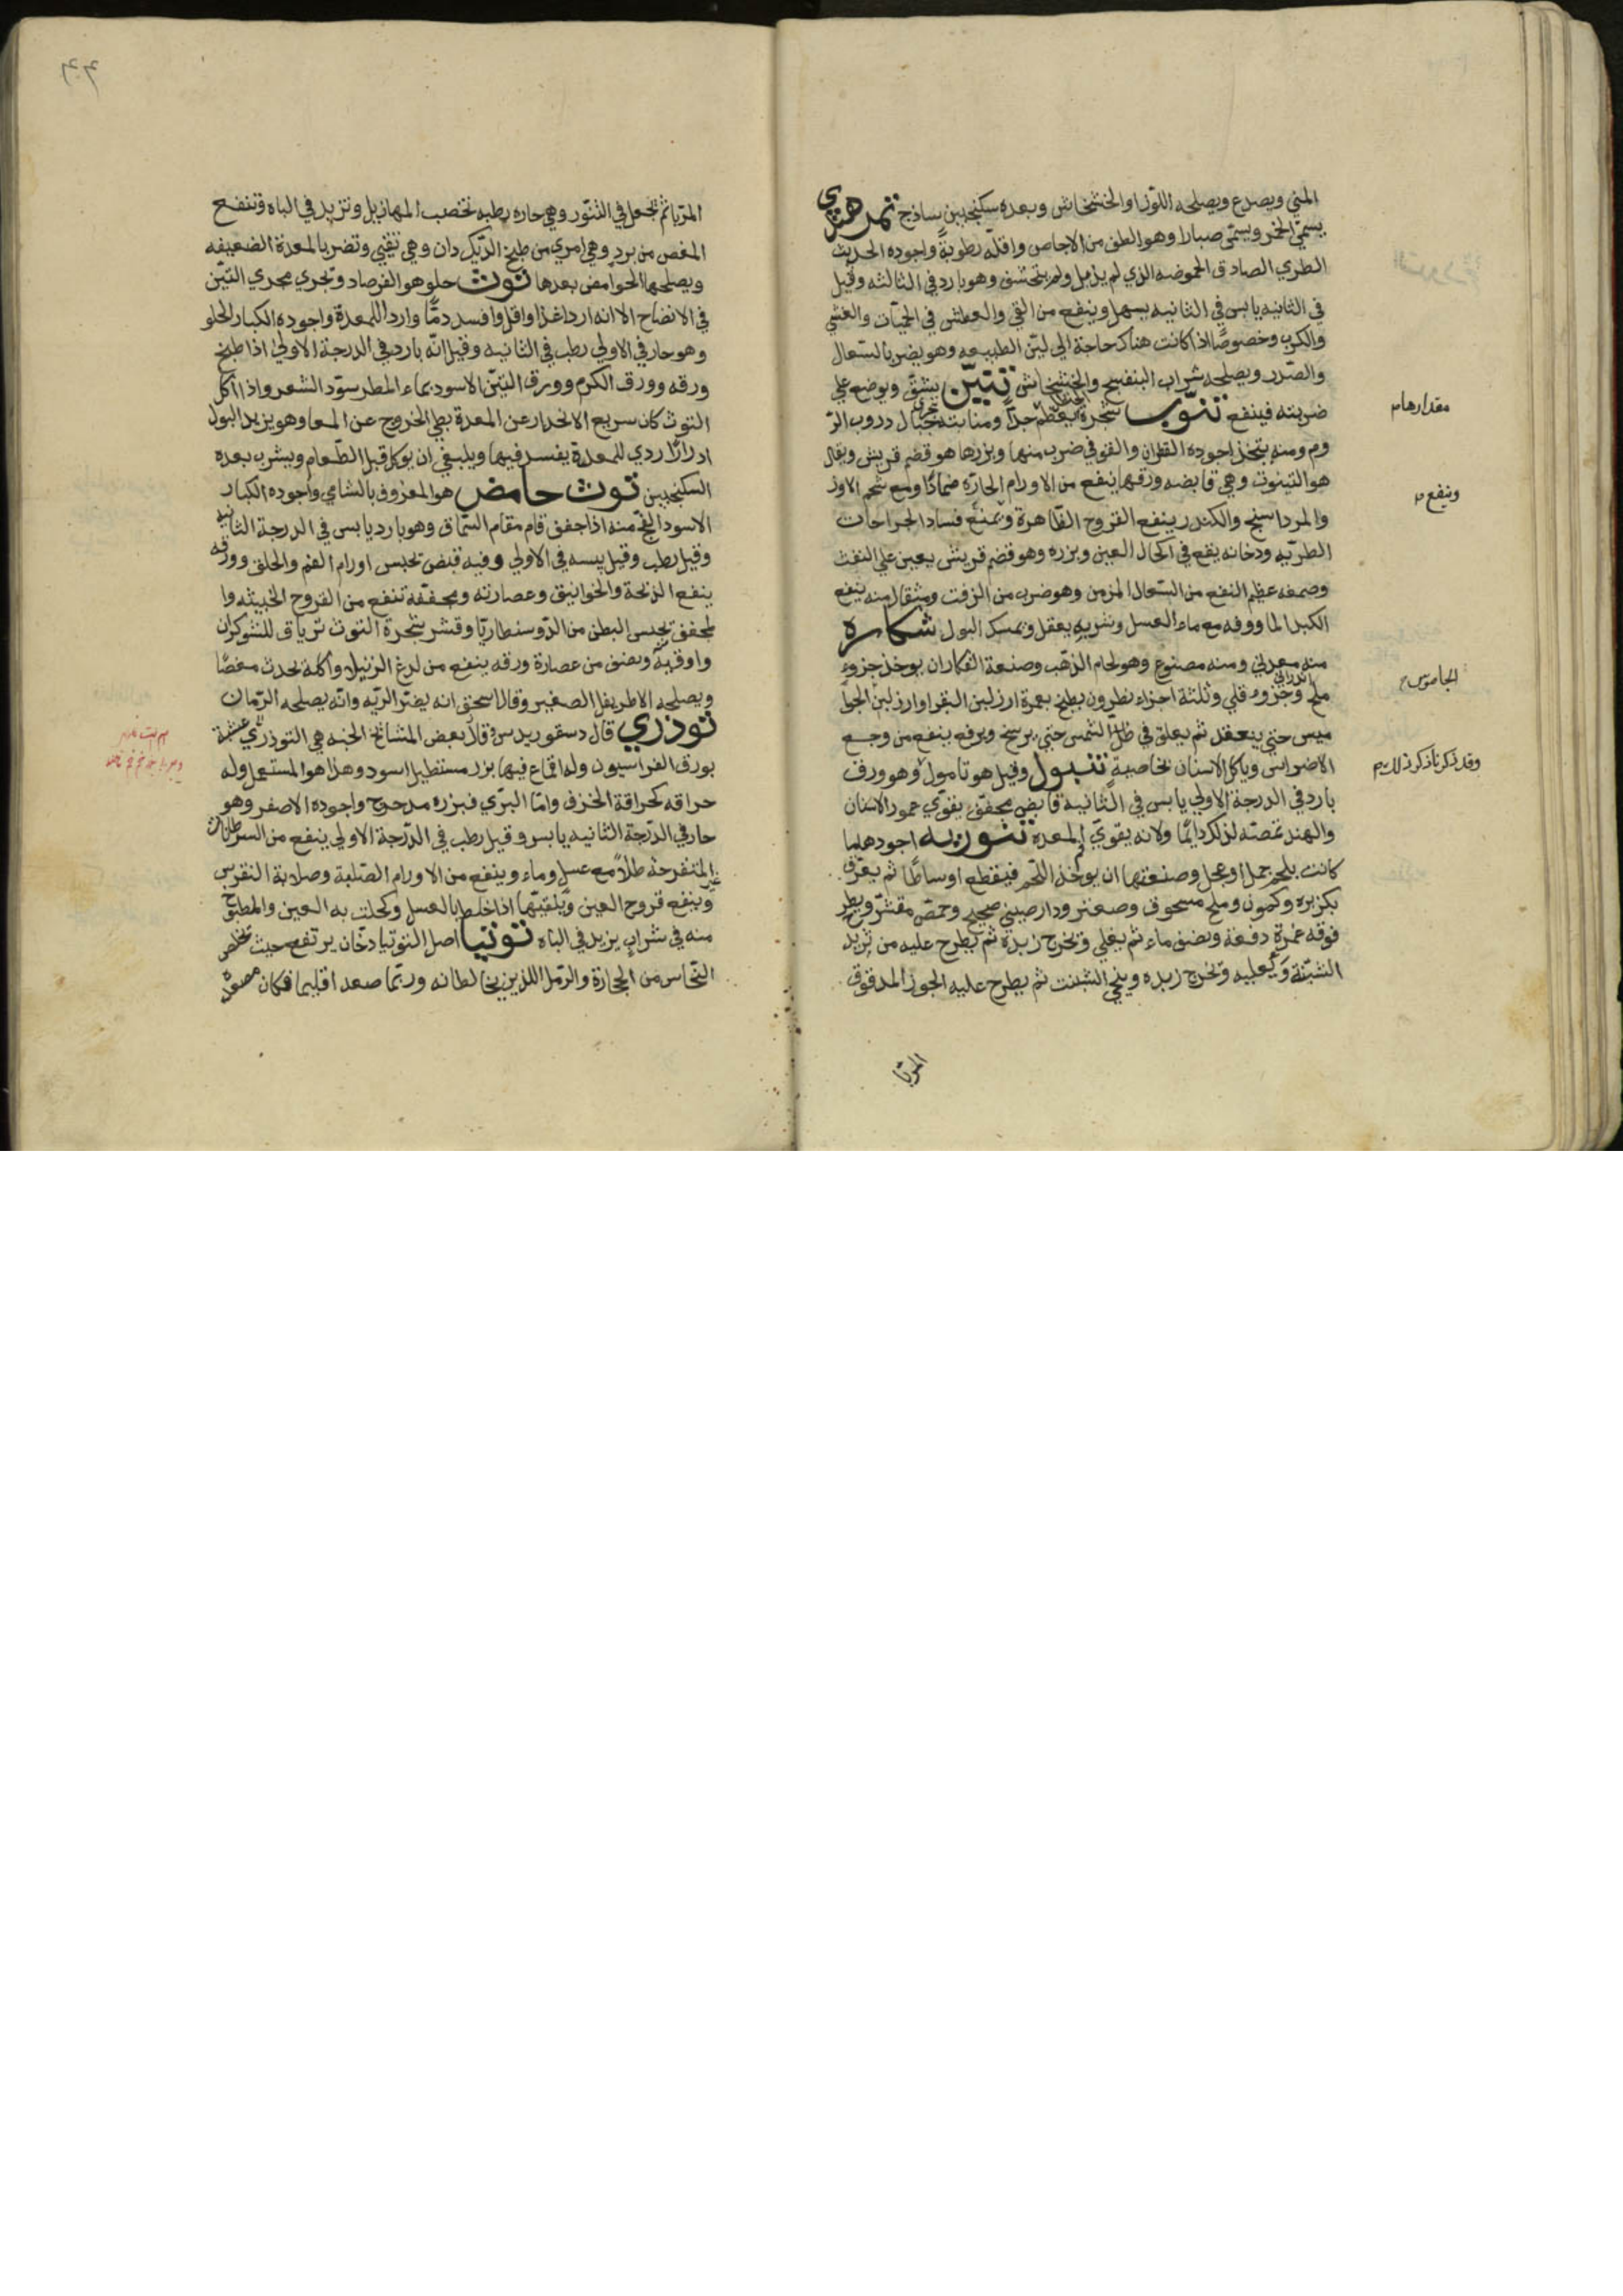 المني ويصدع ويصلحه اللوز والخشخاش وبعده سكنجبين ساذج تمر هندي
يسمّى الحمر ويسمّى صبارا وهو الطف من الاجاص واقلّه رطوبةً واجوده الحديث
الطري الصادق الحموضه الذي لم يذبل ولم يتخشف وهو بارد في الثالثه وقيل
في الثانيه يابس في الثانيه يسهل وينفع من القي والعطش في الحميّات والغشي
والكرب وخصوصًا اذا كانت هناك حاجة الي لين الطبيعه وهو يضر بالسّعال
والصّدر ويصلحه شراب البنفسج والخشخاش تنّين يشقّ ويوضع علي
ضربته فينفع تنّوب شجرة يعظم جدًّا ومنابته جبال دروب الر
وم ومنه يتخذ اجوده القطران والقوفي ضرب منها وبزرها هو قضم قريش ويقال
هو التينوت وهي قابضه ورقها ينفع من الاورام الحارّه ضمادًا ومع شحم الاوز
والمرداسنج والكندر ينفع القروح الظاهرة ويمنع فساد الجراحات
الطريّه ودخانه يقع في اكحال العين وبزره وهو قضم قريش يعين علي النفث
وصمغه عظيم النفع من السّعال المزمن وهو ضرب من الزفت ومثقال منه ينفع
الكبد الماووفه مع ماء العسل وشربه يعقل ويمسك البول تنكاره
منه معدني ومنه مصنوع وهو لحام الذهب وصنعة التكاران يوخذ جزوء
ملح وجزوء قلي وثلثة اجزاء نطرون يطبخ بعمرة ارز لبن البقر او ارز لبن الجوا
ميس حتي ينعقد ثم يعلق في ظل الشمس حتي يرسخ ويرفع ينفع من وجع
الاضراس وياكل الاسنان بخاصية تنبول وقيل هو تامول وهو ورق
بارد في الدرجة الاولي يابس في الثانيه قابض مجفف يقوّي عمور الاسنان
والهند تمضغه لذلك دايمًا ولانه يقوّي المعده تنوريه اجودها ما
كانت بلحم حمل او عجل وصنعتها ان يوخذ اللحم فيقطع اوساطًا ثم يعرّق
بكزبره وكمون وملح مسحوق وصعتر ودارصيني صحيح وحمّص مقشّر ويطرح
فوقه غمرة دفعة ونصف ماء ثم يغلي وتخرج زبدة ثم يطرح عليه من زبد
الشبثة ويغليه وتخرج زبده وينحي الشبنت ثم يطرح عليه الجوز المدقوق
المربّا
مقدارها م
وينفع م
الجاموس ح
وقد ذكرنا ذكر ذلك م
المربّا ثم تجعل في التنّور وهي حاره رطبه تخصب المهازيل وتزيد في الباه وتنفع
المغص من برد وهي امري من طبخ الدّيكدان وهي تغثي وتضر بالمعدة الضعيفه
ويصلحها الحوامض بعدها توت حلو هو الفرصاد ويجري مجري التيّن
في الانضاح الا انه اردا غذا واقل وافسد دمًّا واردا للمعدة واجوده الكبار الحلو
وهو حار في الاولي رطب في الثانيه وقيل انّه بارد في الدرجة الاولي اذا طبخ
ورقه وورق الكرم وورق التين الاسود بماء المطر سوّد الشعر واذا اكل
التوث كان سريع الانحدار عن المعدة بطي الخروج عن المعا وهو يزيد البول
ادرارًا ردي للمعدة يفسد فيها وينبغي ان يوكل قبل الطّعام ويشرب بعده
السكنجبين توث حامض هو المعروف بالشامي واجوده الكبار
الاسود الفجّ منه اذا جفف قام مقام السّماق وهو بارد يابس في الدرجة الثانيه
وقيل رطب وقيل يبسه في الاولي وفيه قبض تحبس اورام الفم والحلق وورقه
ينفع الذبحة والخوانيق وعصارته ومجفّفه تنفع من القروح الخبيثه وا
لمجفف يحبس البطن من الدّوسنطاريّا وقشر شجرة التوث ترياق للشوكران
واوقيّة ونصف من عصارة ورقه ينفع من لدغ الرتيلا واكله يحدث مغصًا
ويصلحه الاطريفل الصغير وقال اسحق انه يضرّ الريّه وانّه يصلحه الرّمان
توذري قال دسقوريدس وقال بعض المشائخ الحبه هي التوذري عشبة
بورق الفراسيون وله اقماع فيها بزر مستطيل اسود وهذا هو المستعمل وله
حراقه كحراقة الخزف وامّا البرّي فبزره مدحرج واجوده الاصفر وهو
حار في الدّرجة الثانيه يابس وقيل رطب في الدّرجة الاولي ينفع من السرطانات
غير المتقرحة طلاءً مع عسل وماء وينفع من الاورام الصّلبة وصلابة النقرس
وينفع قروح العين وينقيها اذا خلط بالعسل وكحلت به العين والمطبوخ
منه في شراب يزيد في الباه توتيا اصل التوتيا دخّان يرتفع حيث يخلص
النّحاس من الحجارة والرّمل اللذين يخالطانه وربّما صعد اقليميا فكان مصعده